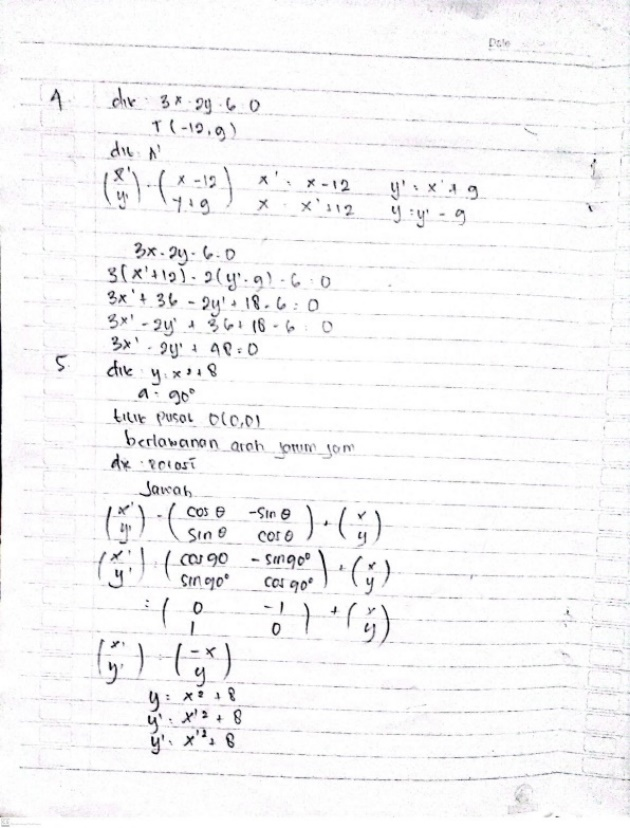 Date
4 dik : 3x - 2y - 6 = 0
T (-12, 9)
dit : A'
(x' y') = (x - 12 y + 9) x' = x - 12 y' = x + 9
x = x' + 12 y = y' - 9
3x - 2y - 6 = 0
3(x' + 12) - 2(y' - 9) - 6 = 0
3x' + 36 - 2y' + 18 - 6 = 0
3x' - 2y' + 36 + 18 - 6 = 0
3x' - 2y' + 48 = 0
5 dik : y = x² + 8
a = 90°
titik pusat O(0,0)
berlawanan arah jarum jam
dit : rotasi
Jawab
(x' y') = (cos θ -sin θ sin θ cos θ) + (x y)
(x' y') = (cos 90 - sin 90° sin 90° cos 90°) + (x y)
= (0 -1 1 0) + (x y)
(x' y') = (-x y)
y = x² + 8
y' = x'² + 8
y' = x'² + 8